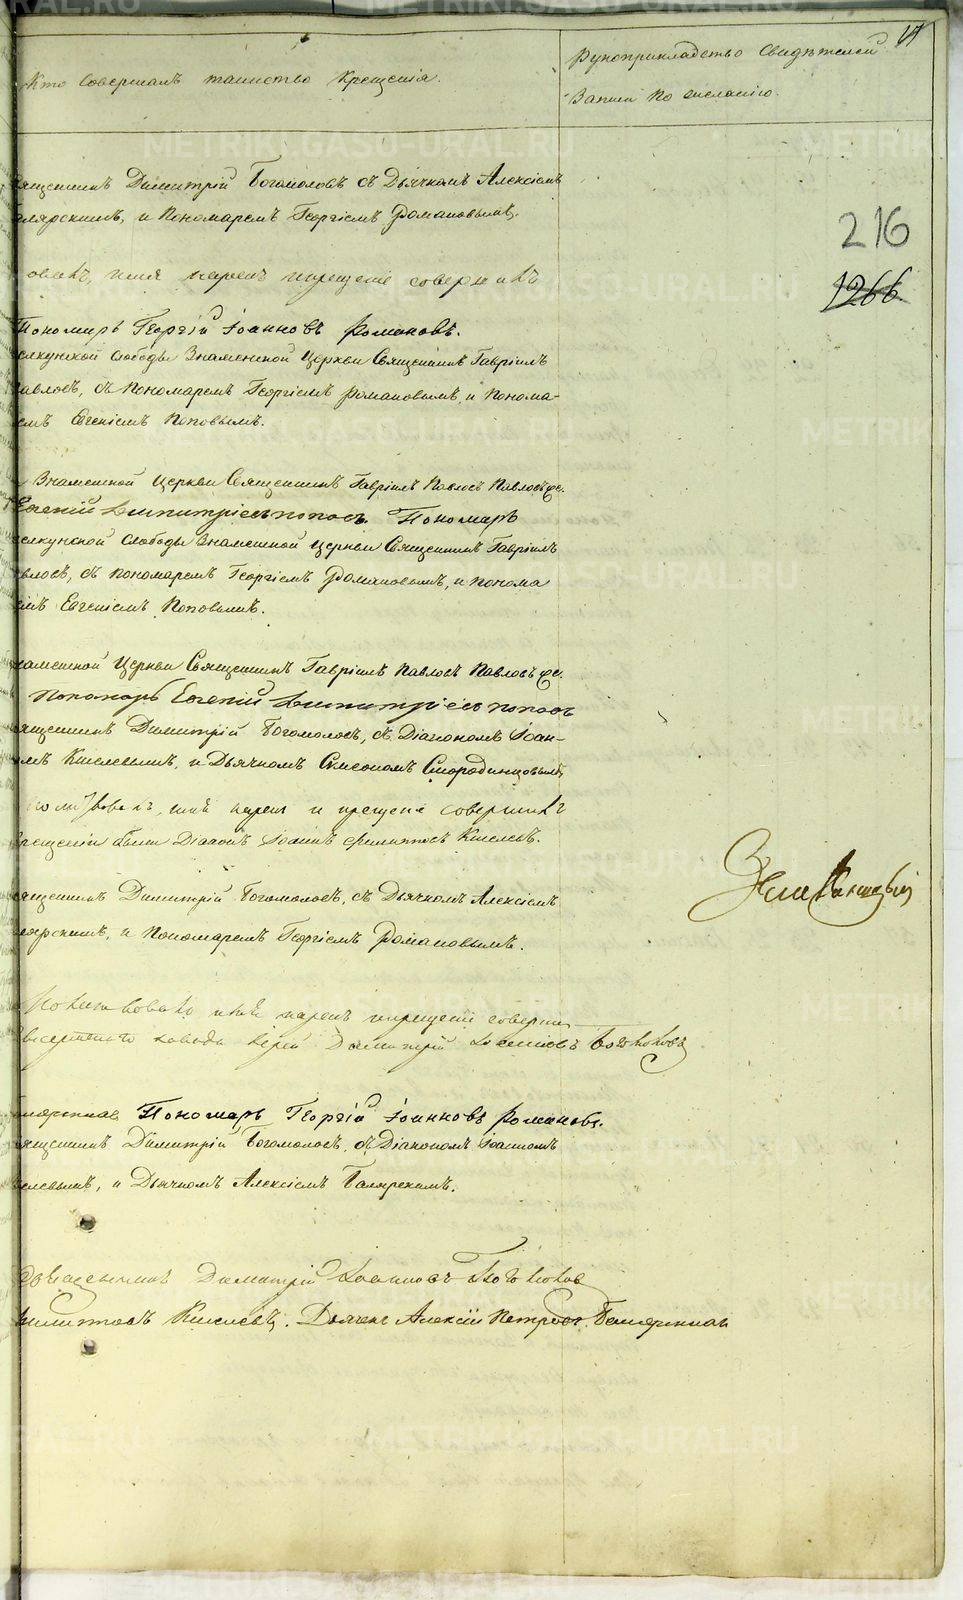 17
Кто совершалъ таинство крещенія.
Рукоприкладство свидѣтелей
записи по желанію.
216
1266
ященникъ Димитрій Богомоловъ съ Дьячкомъ Алексіемъ
лярскимъ, и Пономаремъ Георгіемъ Романовымъ.
имя нарекъ и крещеніе совершилъ
Пономарь Георгій Іоанновъ Романовъ.
Слободы Знаменской Церкви Священникъ Гавріилъ
авловъ, съ Пономаремъ Георгіемъ Романовымъ, и Понома-
емъ Евгеніемъ Поповымъ.
Знаменской Церкви Священникъ Гавріилъ Павловъ Павловъ
Евгеній Димитріевъ Поповъ. Пономарь
Слободы Знаменской Церкви Священникъ Гавріилъ
вловъ, съ Пономаремъ Георгіемъ Романовымъ, и Понома
емъ Евгеніемъ Поповымъ.
наменской Церкви Священникъ Гавріилъ Павловъ Павловъ
Пономарь Евгеній Димитріевъ Поповъ
ященникъ Димитрій Богомоловъ, съ Діакономъ Іоан-
омъ Киселевымъ, и Дьячкомъ Симеономъ Смородинцовымъ
имя нарекъ и крещеніе совершилъ
рещеніи были Діаконъ Іоаннъ Филипповъ Киселевъ.
ященникъ Димитрій Богомоловъ, съ Дьячкомъ Алексіемъ
лярскимъ, и Пономаремъ Георгіемъ Романовымъ.
Молитвовалъ имя нарекъ и крещеніе соверши
завода Іерей Димитрій Іоанновъ Богомоловъ
Пономарь Георгій Іоанновъ Романовъ.
ященникъ Димитрій Богомоловъ, съ Діакономъ Іоанномъ
селевымъ, и Дьячкомъ Алексіемъ Балярскимъ.
Священникъ Димитрій Іоанновъ Богомоловъ
илипповъ Киселевъ. Дьячекъ Алексій Петровъ
METRIKI.GASO-URAL.RU